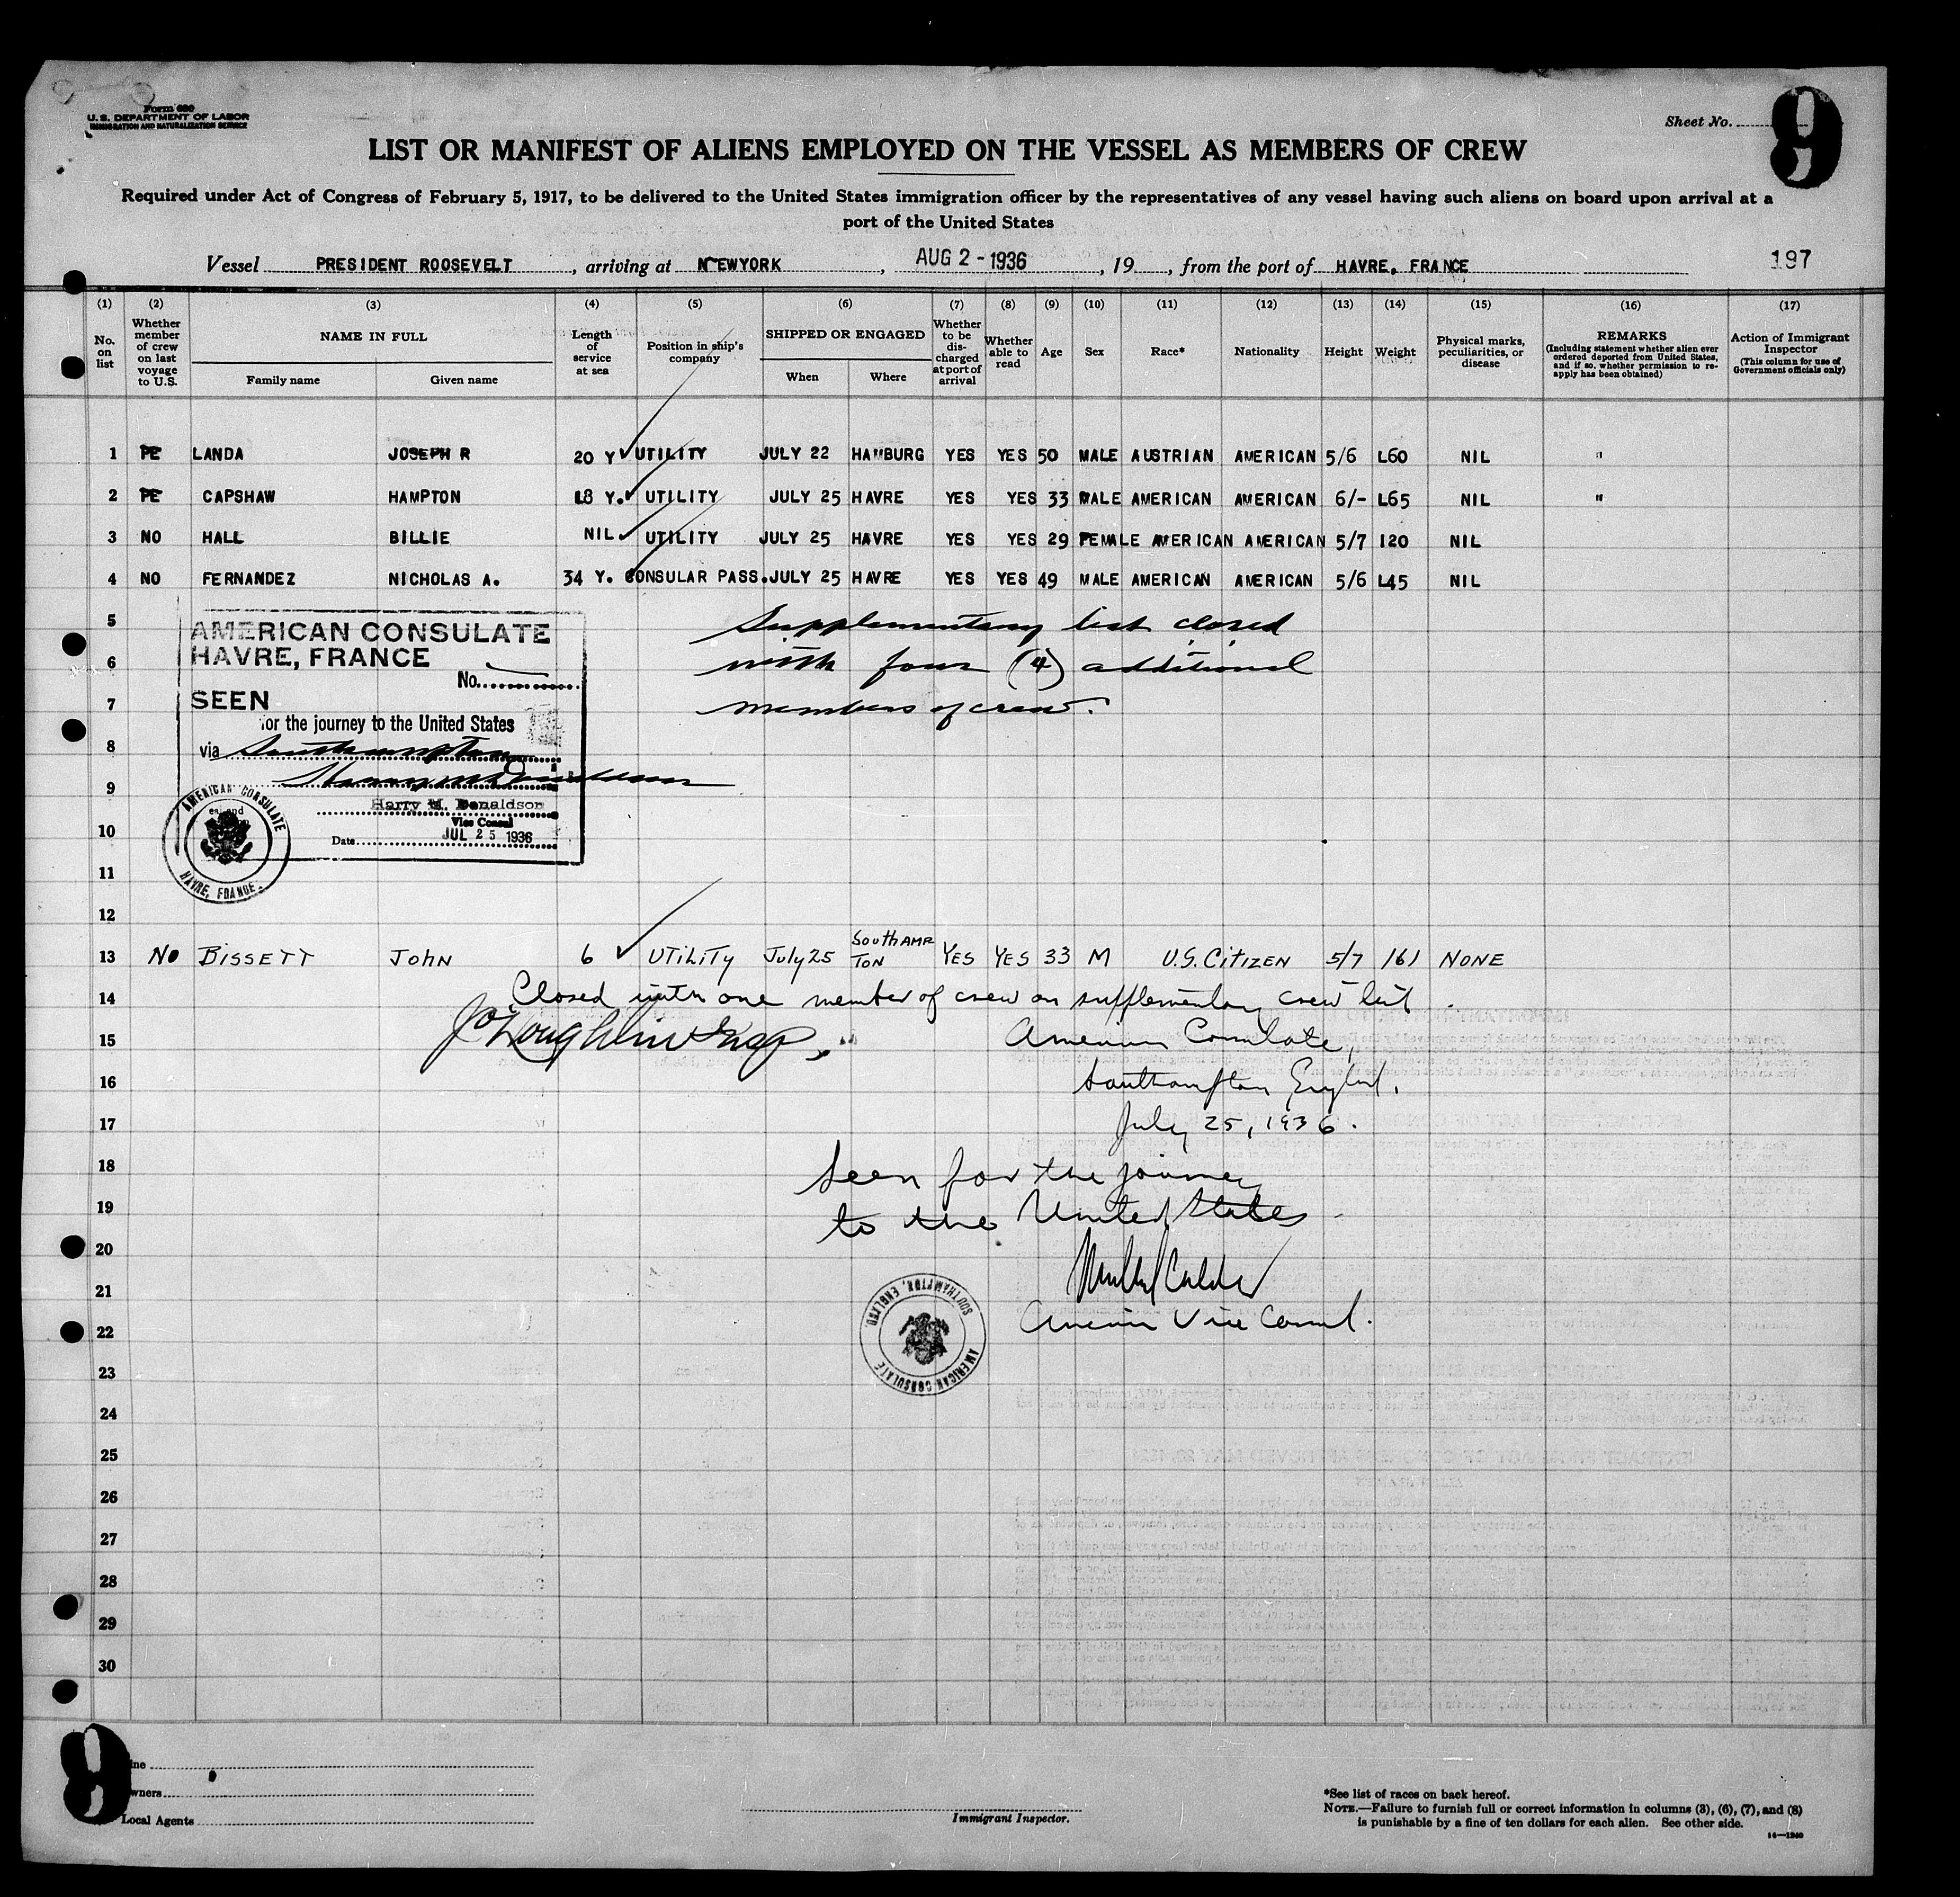 Form 680
U. S. DEPARTMENT OF LABOR
IMMIGRATION AND NATURALIZATION SERVICE
Sheet No. 9
LIST OR MANIFEST OF ALIENS EMPLOYED ON THE VESSEL AS MEMBERS OF CREW
Required under Act of Congress of February 5, 1917, to be delivered to the United States immigration officer by the representatives of any vessel having such aliens on board upon arrival at a
port of the United States
Vessel PRESIDENT ROOSEVELT, arriving at NEWYORK, AUG 2 - 1936, 19, from the port of HAVRE, FRANCE 197
(1) (2) (3) (4) (5) (6) (7) (8) (9) (10) (11) (12) (13) (14) (15) (16) (17)
No. on list
Whether member of crew on last voyage to U.S.
NAME IN FULL
Family name
Given name
Length of service at sea
Position in ship's company
SHIPPED OR ENGAGED
When
Where
Whether to be discharged at port of arrival
Whether able to read
Age
Sex
Race*
Nationality
Height
Weight
Physical marks, peculiarities, or disease
REMARKS
(Including statement whether alien ever ordered deported from United States, and if so, whether permission to re-apply has been obtained)
Action of Immigrant Inspector
(This column for use of Government officials only)
1 PE LANDA JOSEPH R 20 Y UTILITY JULY 22 HAMBURG YES YES 50 MALE AUSTRIAN AMERICAN 5/6 L60 NIL "
2 PE CAPSHAW HAMPTON L8 Y. UTILITY JULY 25 HAVRE YES YES 33 MALE AMERICAN AMERICAN 6/- L65 NIL "
3 NO HALL BILLIE NIL UTILITY JULY 25 HAVRE YES YES 29 FEMALE AMERICAN AMERICAN 5/7 120 NIL
4 NO FERNANDEZ NICHOLAS A. 34 Y. CONSULAR PASS. JULY 25 HAVRE YES YES 49 MALE AMERICAN AMERICAN 5/6 L45 NIL
5
6
7
8
9
10
11
12
AMERICAN CONSULATE
HAVRE, FRANCE
No.
SEEN
for the journey to the United States
via Southampton
Harry M Donaldson
Harry M. Donaldson
Vice Consul
Date JUL 25 1936
AMERICAN CONSULATE
HAVRE, FRANCE
Supplementary list closed
with four (4) additional
members of crew.
13 NO BISSETT JOHN 6 UTILITY July 25 SOUTHAMPTON YES YES 33 M U.S. CITIZEN 5/7 161 NONE
14 Closed with one member of crew on supplementary crew list.
15 American Consulate,
16 Southampton England.
17 July 25, 1936.
18 Seen for the journey
19 to the United States
20
21
22 American Vice Consul.
AMERICAN CONSULATE
SOUTHAMPTON, ENGLAND
23
24
25
26
27
28
29
30
9
Owners
Local Agents
Immigrant Inspector.
*See list of races on back hereof.
NOTE.—Failure to furnish full or correct information in columns (3), (6), (7), and (8)
is punishable by a fine of ten dollars for each alien. See other side.
14—1240